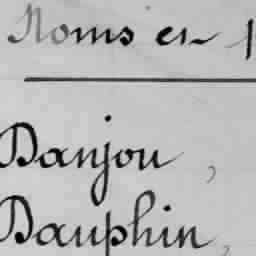 Noms et 
Danjou,
Dauphin,